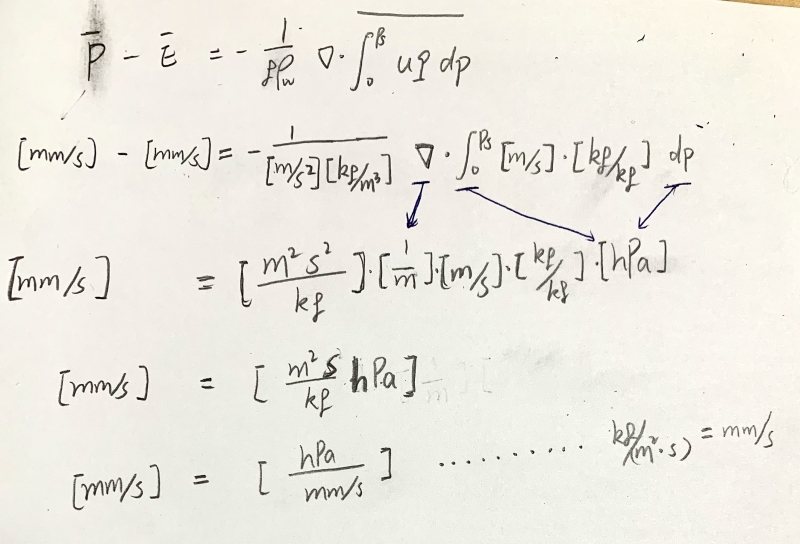 P̄ - Ē = - 1/(gρw) ∇ · ∫₀^Ps uq dp
[mm/s] - [mm/s] = - 1/([m/s²][kg/m³]) ∇ · ∫₀^Ps [m/s] · [kg/kg] dp
[mm/s] = [m²s²/kg] · [1/m] · [m/s] · [kg/kg] · [hPa]
[mm/s] = [m²s/kg hPa]
[mm/s] = [hPa/(mm/s)] .......... kg/(m²·s) = mm/s